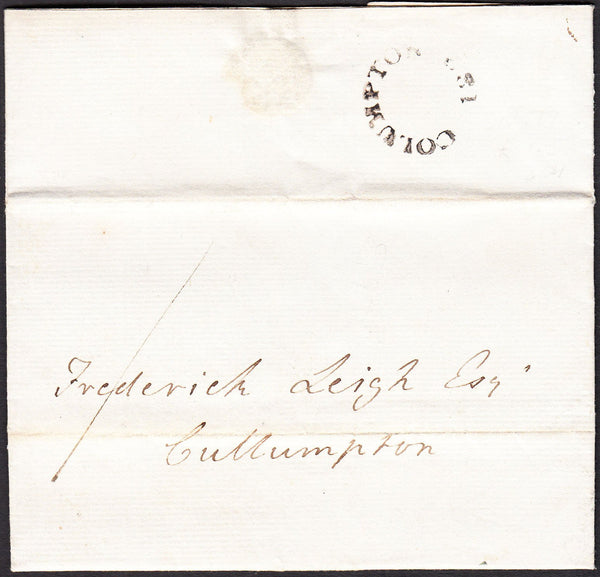 COLUMPTON 181
Frederick Leigh Esqr
Cullumpton